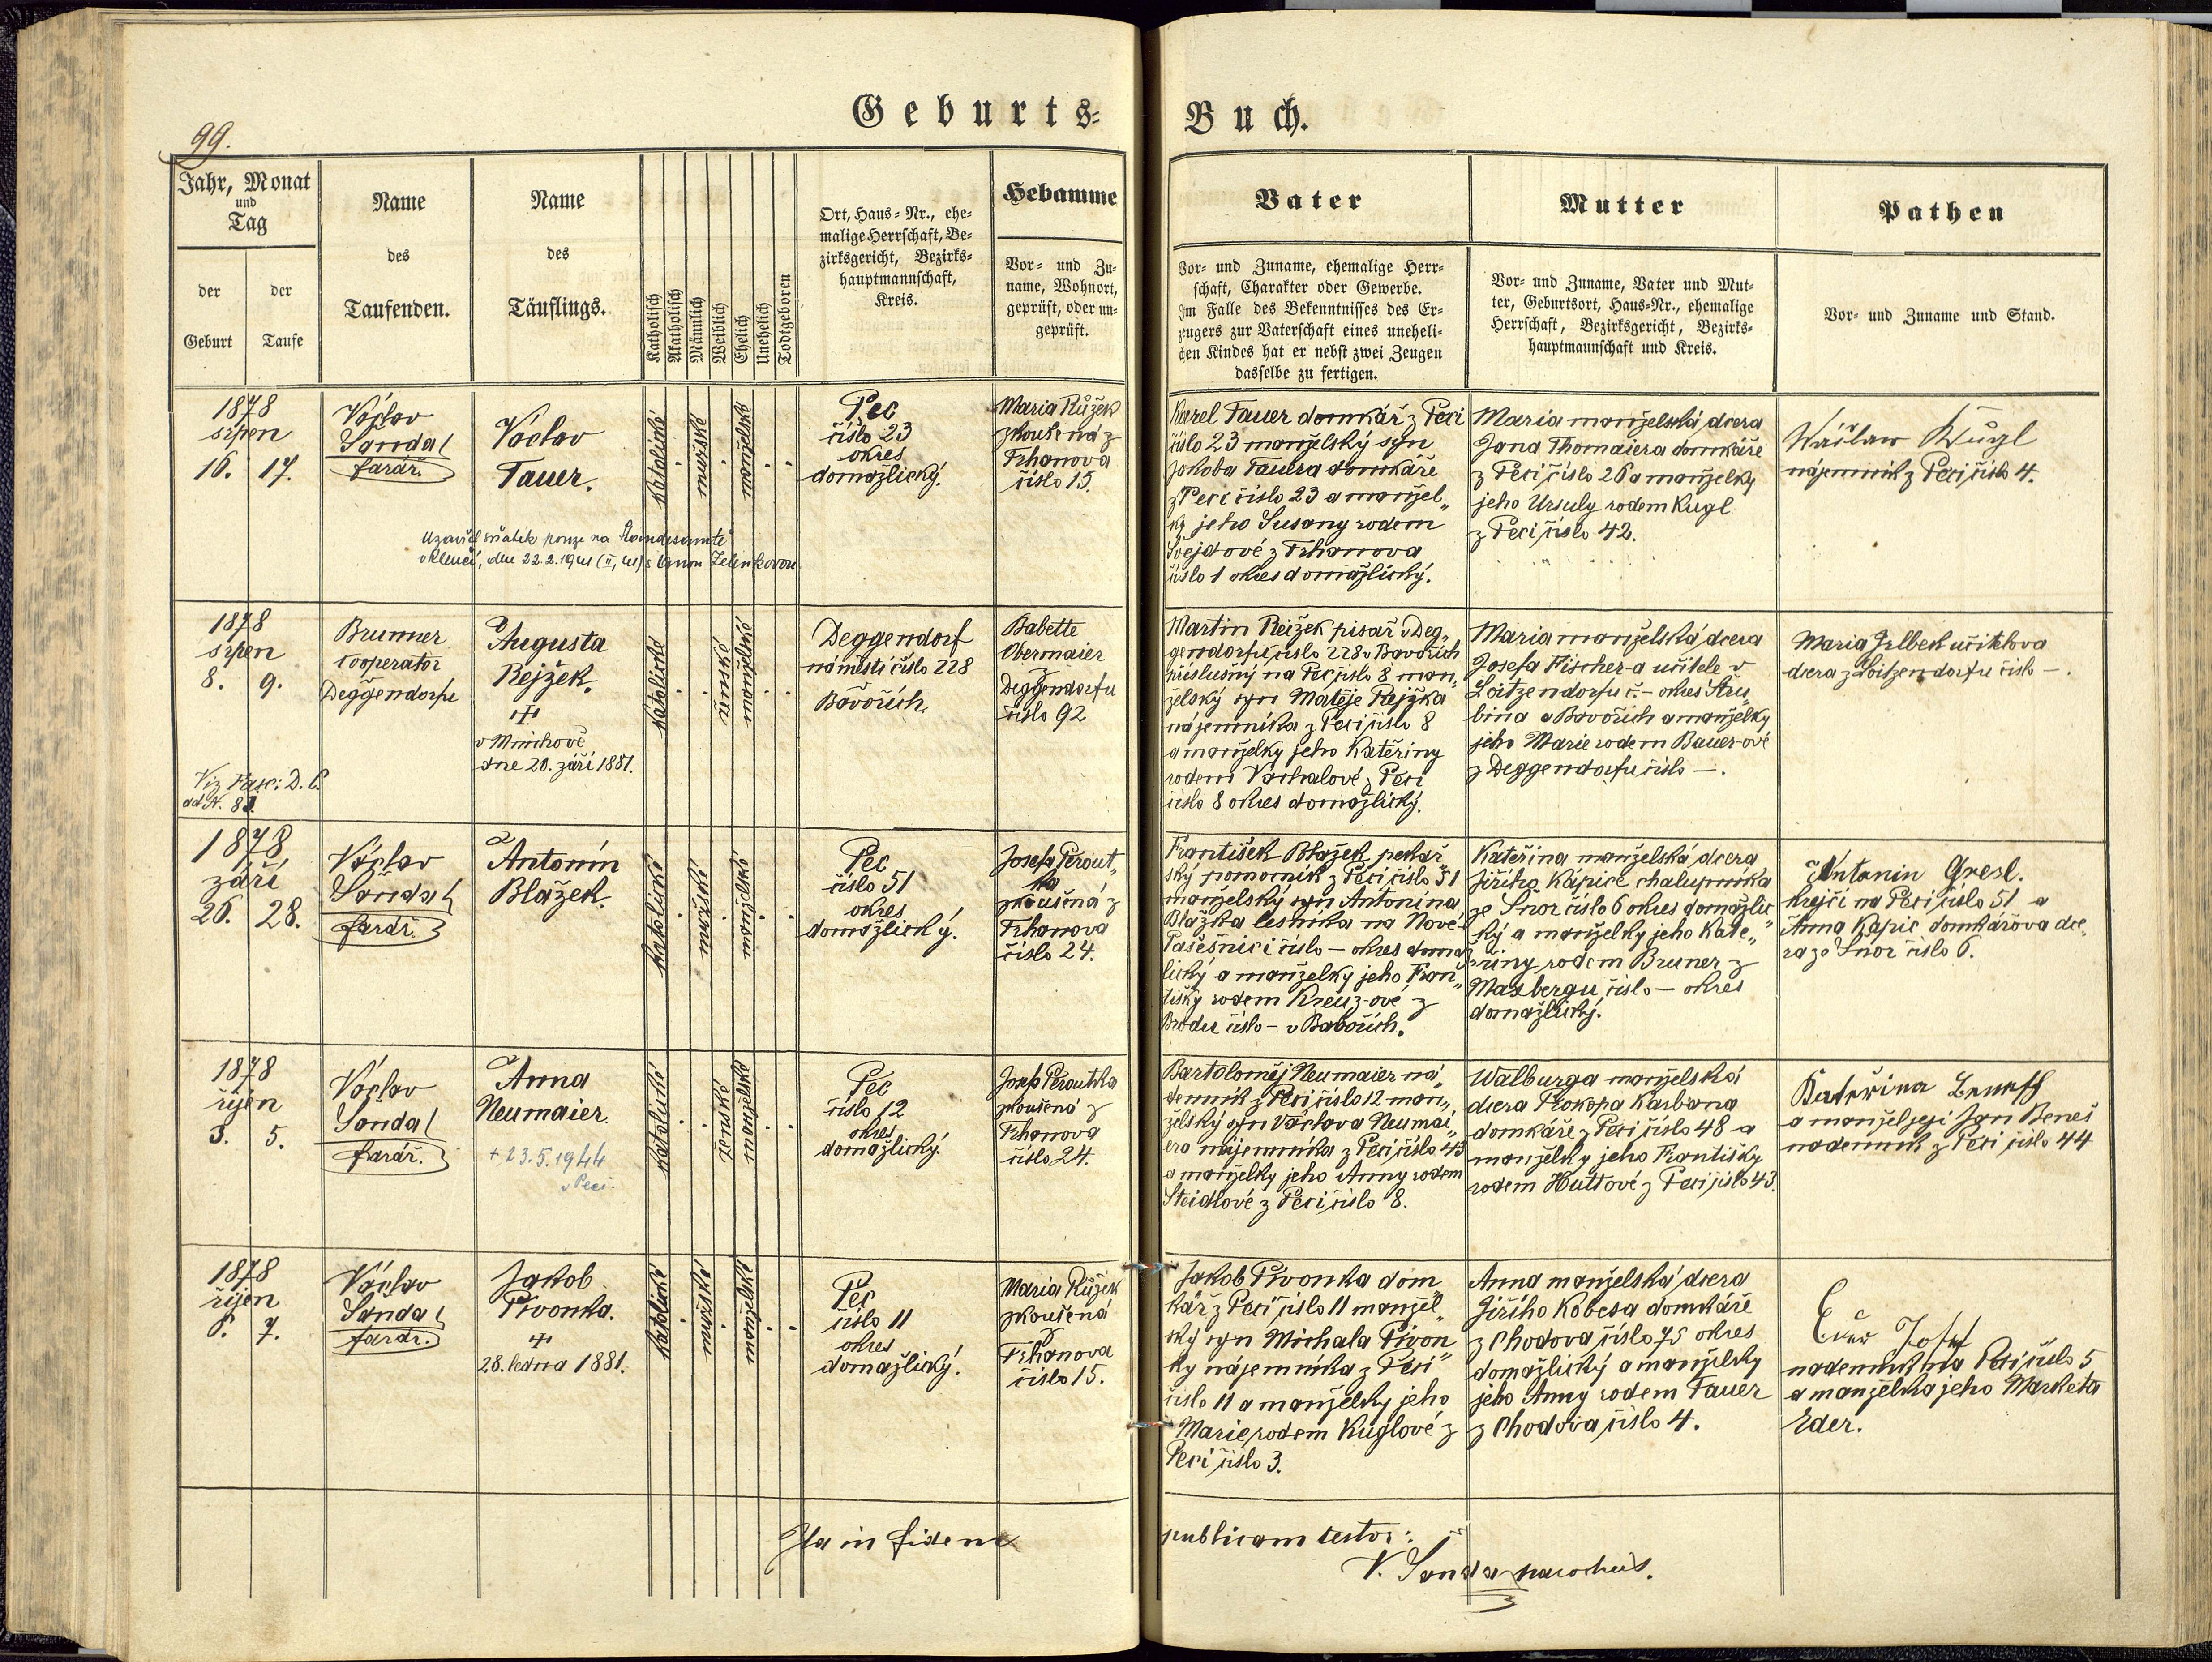 Geburts-
Buch.
99.
Jahr, Monat
und
Tag
der
Geburt
der
Taufe
Name
des
Taufenden.
Name
des
Täuflings.
Katholisch
Akatholisch
Männlich
Weiblich
Ehelich
Unehelich
Todtgeboren
Ort, Haus-Nr., ehe-
malige Herrschaft, Be-
zirksgericht, Bezirks-
hauptmannschaft,
Kreis.
Hebamme
Vor- und Zu-
name, Wohnort,
geprüft, oder un-
geprüft.
Vater
Vor- und Zuname, ehemalige Herr-
schaft, Charakter oder Gewerbe.
Im Falle des Bekenntnisses des Er-
zeugers zur Vaterschaft eines uneheli-
chen Kindes hat er nebst zwei Zeugen
dasselbe zu fertigen.
Mutter
Vor- und Zuname, Vater und Mut-
ter, Geburtsort, Haus-Nr., ehemalige
Herrschaft, Bezirksgericht, Bezirks-
hauptmannschaft und Kreis.
Pathen
Vor- und Zuname und Stand.
1878
srpen
16. 17.
Václav
Šanda
farář.
Václav
Tauer.
katolické
mužské
manželské
Pec
číslo 23
okres
domažlický.
Maria Růžek
zkoušená z
Trhanova
číslo 15.
Karel Tauer domkář z Peci
číslo 23 manželský syn
Jakoba Tauera domkáře
z Peci číslo 23 a manžel„
ky jeho Susany rodem
Švejdové z Trhanova
číslo 1 okres domažlický.
Maria manželská dcera
Jana Thomaiera domkáře
z Peci číslo 26 a manželky
jeho Ursuly rodem Kugl
z Peci číslo 42.
Wáclaw Kügl
nájemník z Peci číslo 4.
Uzavřel sňatek pouze na Landesamtě
v Klenčí, dne 22.2.1941 s Annou Zelenkovou
1878
srpen
8. 9.
Viz Fasc: D. C.
ad N. 81.
Brunner
cooperator
Deggendorfu
Augusta
Rejžek.
+
v Mnichově
dne 20. září 1881.
katolické
ženské
manželské
Deggendorf
náměstí číslo 228
v
Bavořích
Babette
Obermaier
z
Deggendorfu
číslo 92
Martin Rejžek pisař v Deg„
gendorfu číslo 228 v Bavořích
příslušný na Pec číslo 8 man„
želský syn Matěje Rejžka
nájemníka z Peci číslo 8
a manželky jeho Kateřiny
rodem Vachalové z Peci
číslo 8 okres domažlický.
Maria manželská dcera
Josefa Fischer-a učitele v
Loitzendorfu č. – okres Štru„
bina v Bavořích a manželky
jeho Marie rodem Bauer-ové
z Deggendorfu číslo –.
Maria Jelbek učitelova
dcera z Loitzendorfu číslo –.
1878
září
26. 28.
Václav
Šanda
farář.
Antonín
Blažek.
katolické
mužské
manželské
Pec
číslo 51
okres
domažlický.
Josefa Perout„
ka
zkoušená z
Trhanova
číslo 24.
František Blažek pekař„
ský pomocník z Peci číslo 51
manželský syn Antonína
Blažka lesníka na Nové
Pasečnici číslo – okres domaž
lický a manželky jeho Fran„
tišky rodem Kreuz-ové z
Brodu číslo – v Bavořích.
Kateřina manželská dcera
Jiřího Kápice chalupníka
ze Šnor číslo 6 okres domažlic„
ký a manželky jeho Kate„
řiny rodem Bruner z
Maxbergu číslo – okres
domažlický.
Antonin Gresl.
krejčí na Peci číslo 51 a
Anna Kápic domkářova dce„
ra ze Šnor číslo 6.
1878
říjen
3. 5.
Václav
Šanda
farář.
Anna
Neumaier.
+ 23.5.1944
v Peci.
katolické
ženské
manželské
Pec
číslo 12
okres
domažlický.
Josefa Peroutka
zkoušená z
Trhanova
číslo 24.
Bartoloměj Neumaier ná„
denník z Peci číslo 12 man„
želský syn Václava Neumai„
era nájemníka z Peci číslo 43
a manželky jeho Anny rodem
Steidlové z Peci číslo 8.
Walburga manželská
dcera Prokopa Karbana
domkáře z Peci číslo 48 a
manželky jeho Františky
rodem Huttové z Peci číslo 43.
Kateřina Beneš
a manžel její Jan Beneš
nadenník z Peci číslo 44
1878
říjen
6. 7.
Václav
Šanda
farář.
Jakob
Pivonka.
+
28. ledna 1881.
katolické
mužské
manželské
Pec
číslo 11
okres
domažlický.
Maria Růžek
zkoušená
z
Trhanova
číslo 15.
Jakob Pivonka dom„
kář z Peci číslo 11 manžel„
ský syn Michala Pivon„
ky nájemníka z Peci
číslo 11 a manželky jeho
Marie rodem Kuglové z
Peci číslo 3.
Anna manželská dcera
Jiřího Kobesa domkáře
z Chodova číslo 75 okres
domažlický a manželky
jeho Anny rodem Tauer
z Chodova číslo 4.
Eder Josef
nadenník na Peci číslo 5
a manželka jeho Marketa
Eder.
Ita in fidem
publicam testor:
V. Šanda parochus.